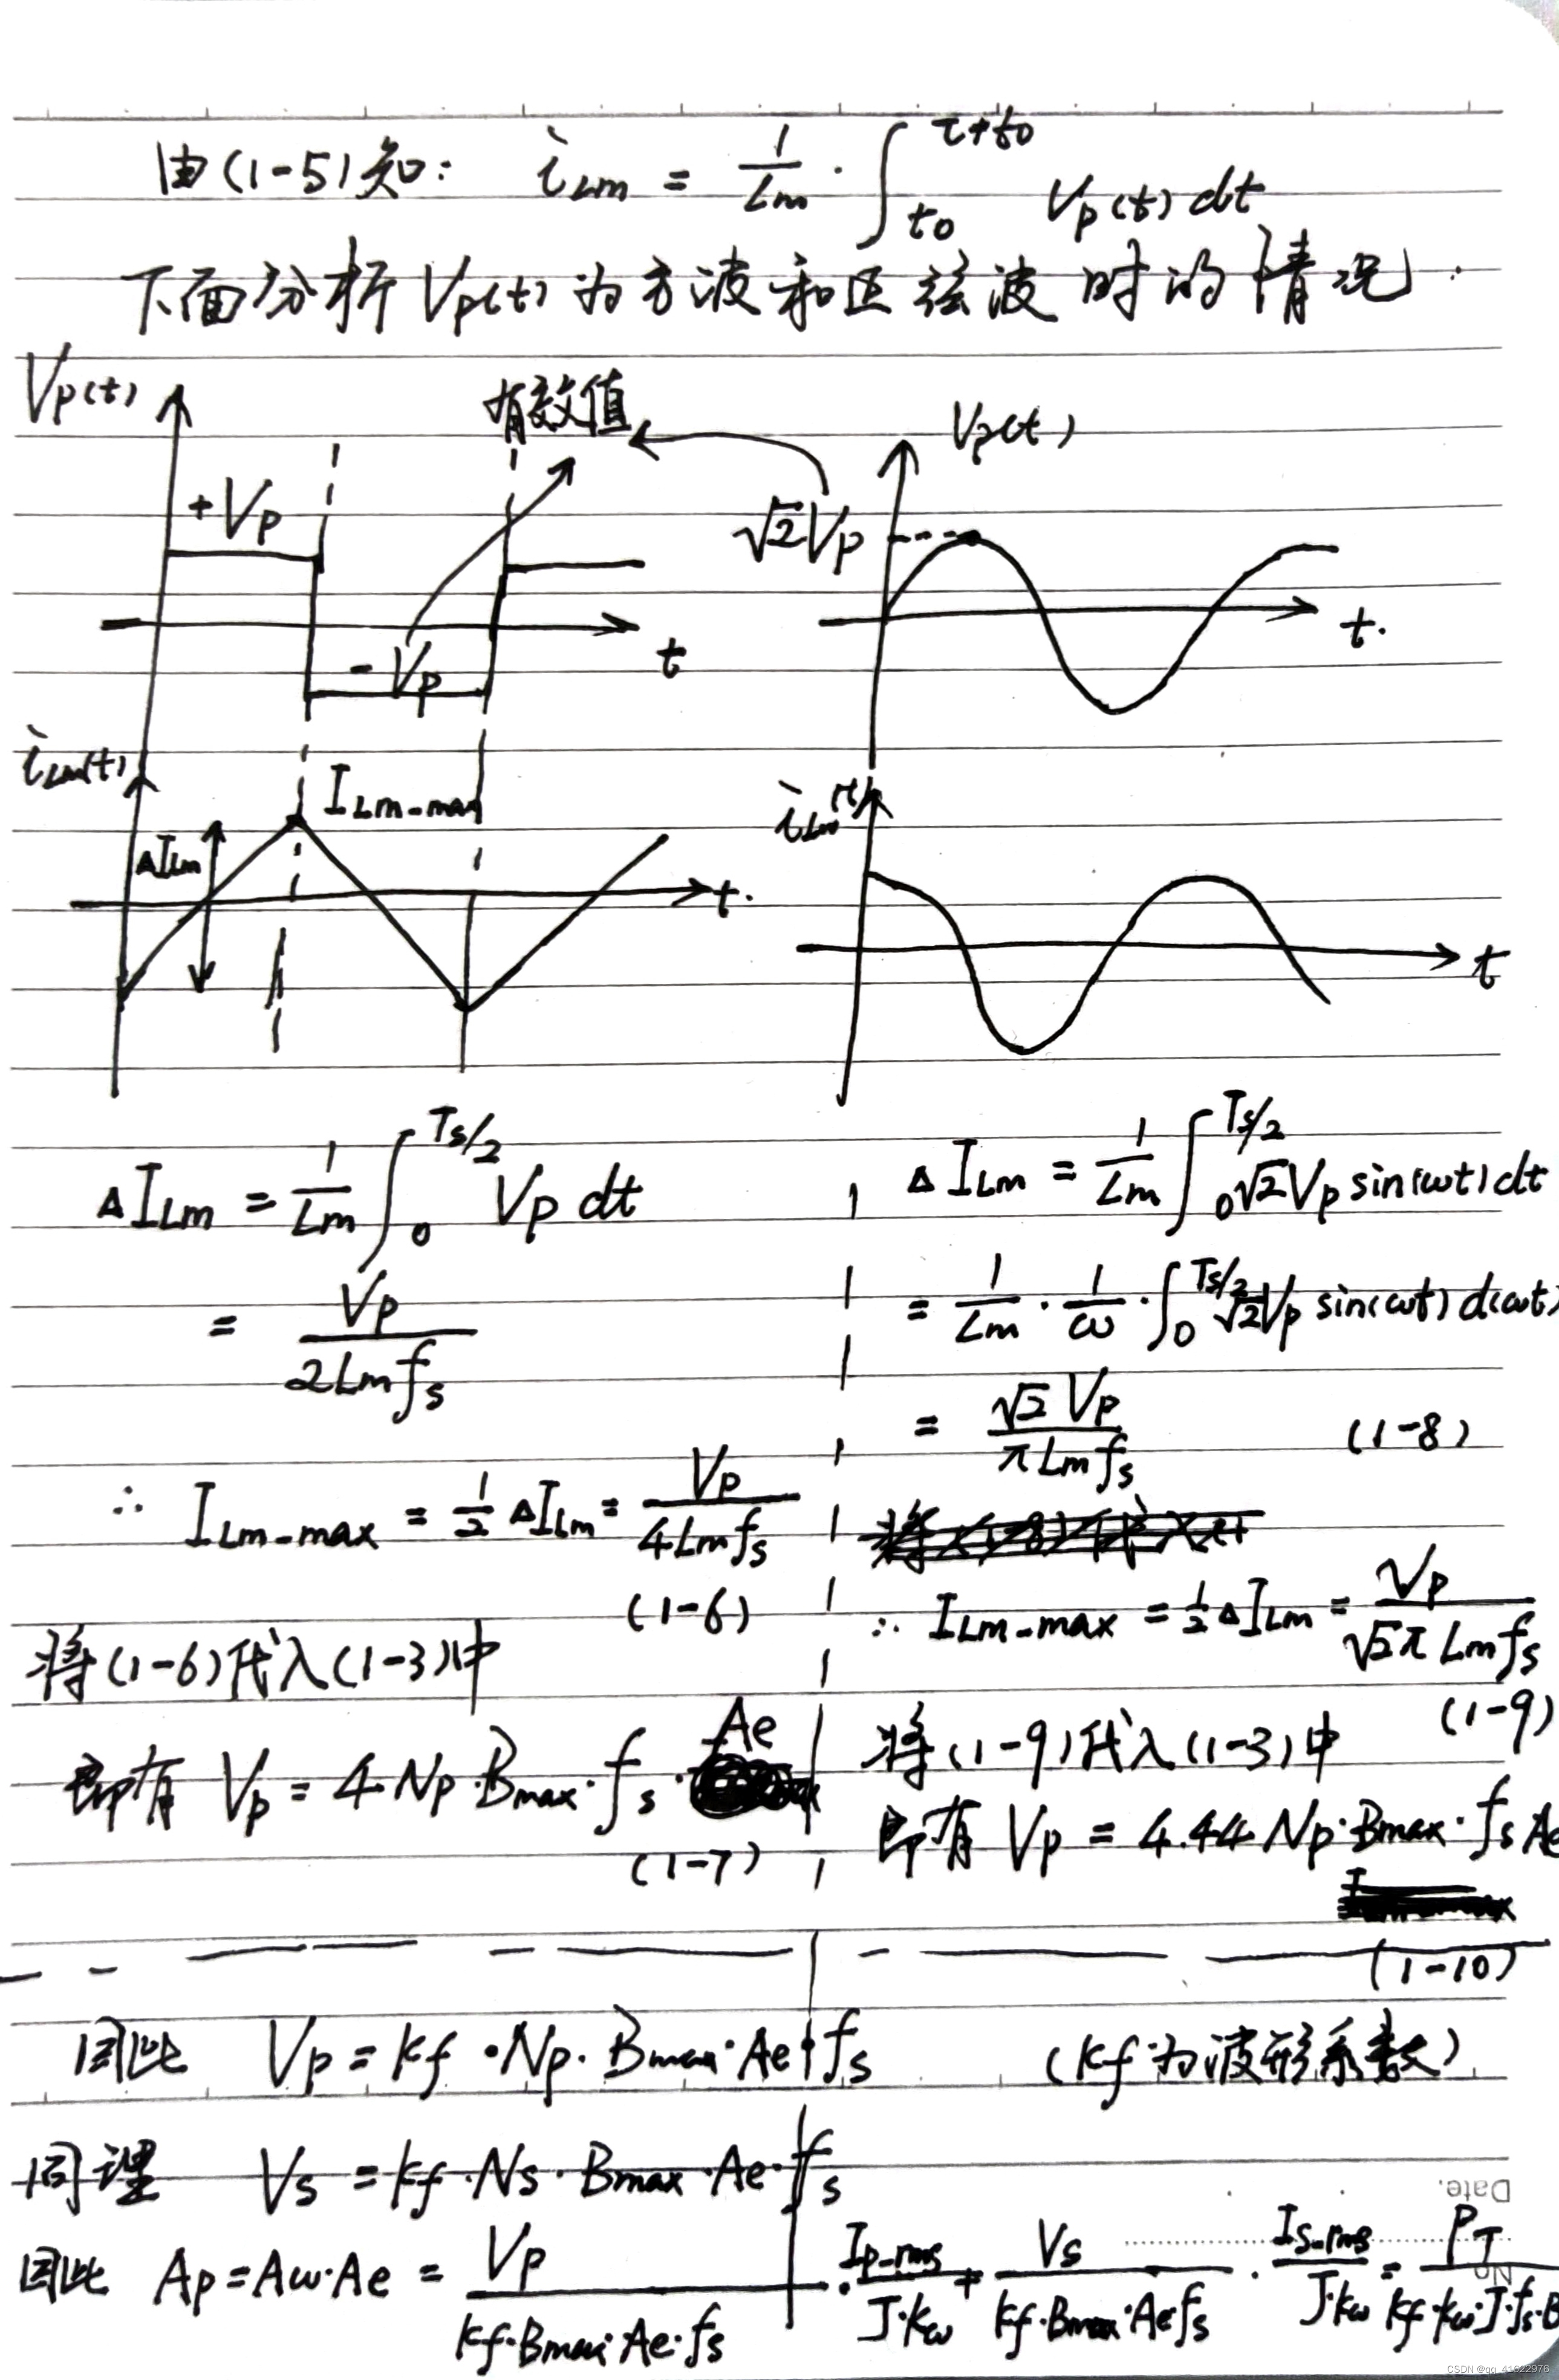 由(1-5)知: iLm = 1/Lm · ∫_{t0}^{τ+t0} Vp(t) dt
下面分析 Vp(t) 为方波和正弦波时的情况:
Vp(t)
有效值
+Vp
-Vp
t
iLm(t)
ILm-max
ΔILm
t.
ΔILm = 1/Lm ∫_0^{Ts/2} Vp dt
= Vp/(2Lmfs)
∴ ILm-max = 1/2 ΔILm = Vp/(4Lmfs)
(1-6)
将(1-6)代入(1-3)中
即有 Vp = 4·Np·Bmax·fs·Ae
(1-7)
Vp(t)
√2Vp
t.
iLm(t)
t
ΔILm = 1/Lm ∫_0^{Ts/2} √2Vp sin(ωt) dt
= 1/Lm · 1/ω · ∫_0^{Ts/2} √2Vp sin(ωt) d(ωt)
= √2Vp/(πLmfs) (1-8)
∴ ILm-max = 1/2 ΔILm = Vp/(√2πLmfs)
(1-9)
将(1-9)代入(1-3)中
即有 Vp = 4.44 Np·Bmax·fs Ae
(1-10)
因此 Vp = kf·Np·Bmax·Ae·fs (kf为波形系数)
同理 Vs = kf·Ns·Bmax·Ae·fs
Date.
No
因此 Ap = Aw·Ae = Vp/(kf·Bmax·Ae·fs) · Ip-rms/(J·kw) + Vs/(kf·Bmax·Ae·fs) · Is-rms/(J·kw) = PT/(kf·kw·J·fs·B
CSDN @qq_41522976